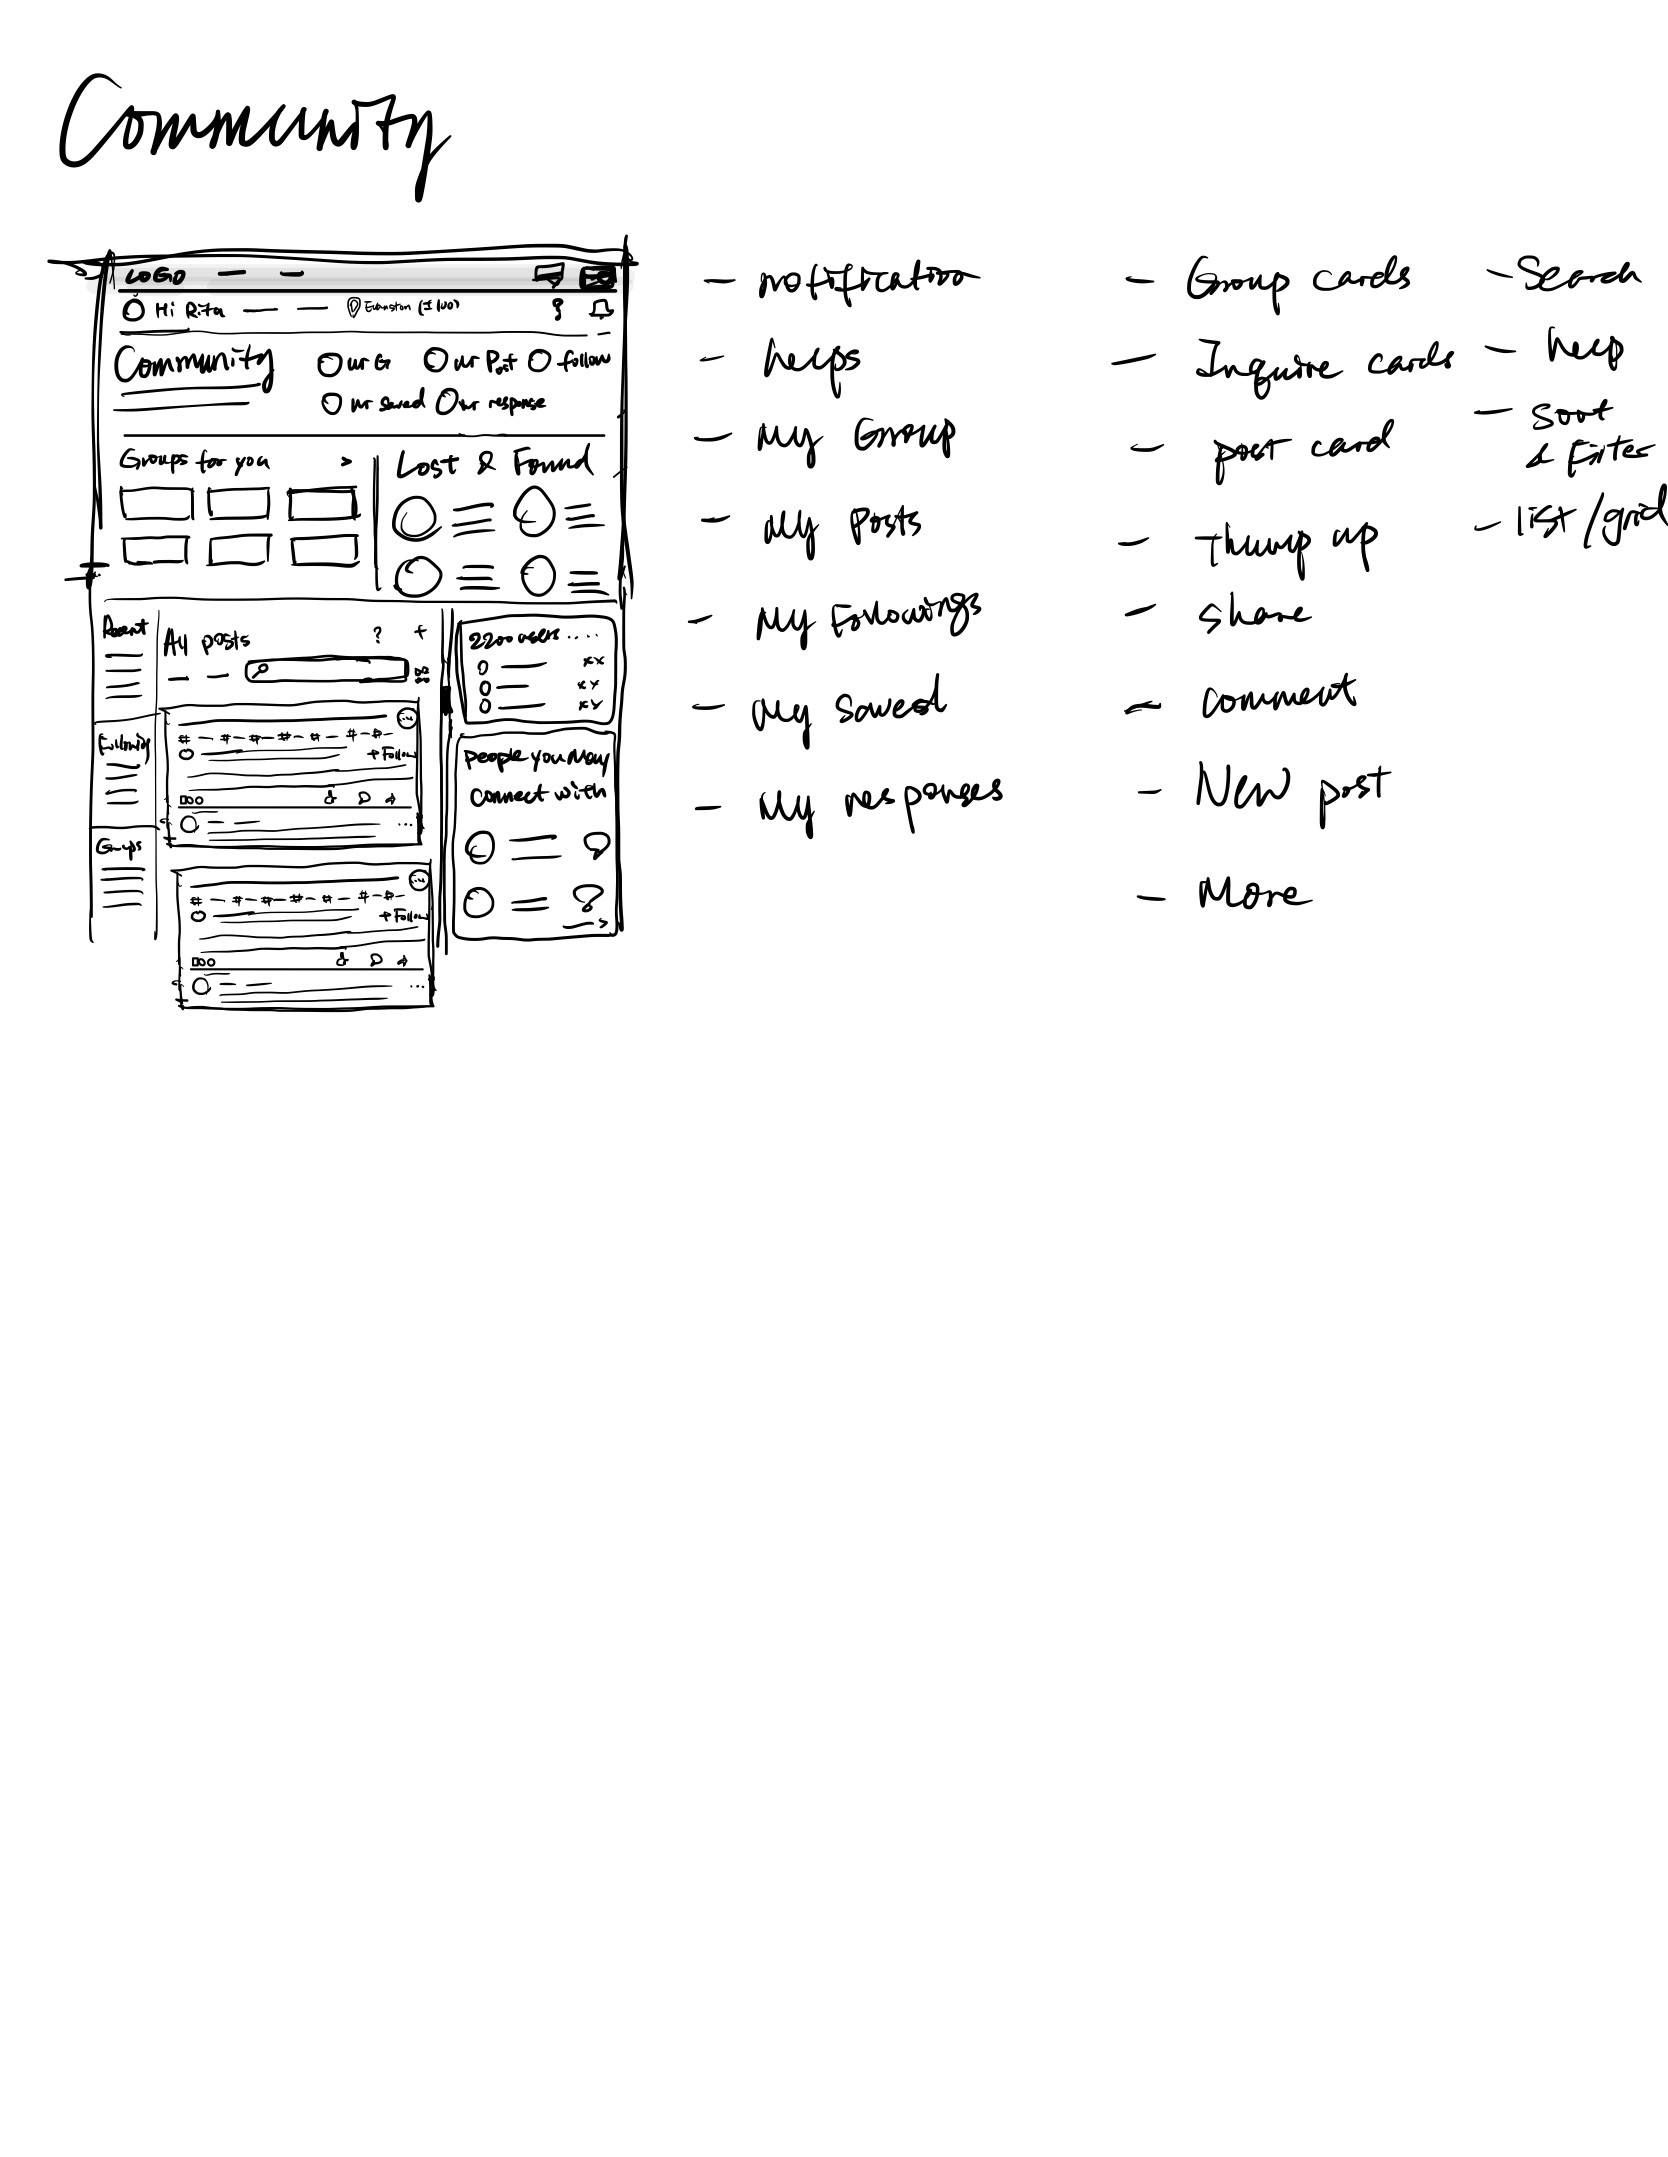 Community
LOGO
Hi Rita
Evanston
Community
ur G
ur Post
follow
ur saved
ur response
Groups for you >
Lost & Found
Recent
Following
Groups
All posts ? +
# # # # # # #
+ Follow
# # # # # # #
+ Follow
2200 users ....
xx
xx
xx
People you may
connect with
>
- notification
- helps
- My Group
- My Posts
- My Followings
- My Saved
- My responses
- Group cards
- Inquire cards
- post card
- Thump up
- share
- comment
- New post
- More
- Search
- help
- Sort
& Filter
- list/grid